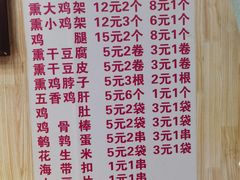 熏大鸡架 12元2个 8元1个
熏小鸡架 12元3个 6元1个
鸡腿 15元2个 8元1个
熏干豆腐 5元2卷 3元1卷
熏干豆皮 5元2卷 3元1卷
熏鸡脖子 5元3根 2元1根
五香鸡肝 5元6个 1元1个
鸡肚 5元2袋 3元1袋
鸡骨棒 5元2袋 3元1袋
鹌鹑蛋 5元2袋 3元1袋
花生米 5元2袋 3元1袋
海带扣 1元1串
1元1串